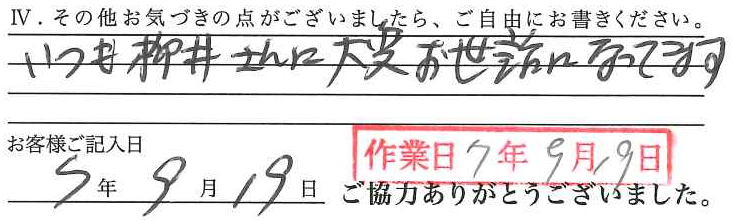 Ⅳ．その他お気づきの点がございましたら、ご自由にお書きください。
いつも柳井さんに大変お世話になってます
お客様ご記入日
作業日 7年9月19日
7年9月19日
ご協力ありがとうございました。